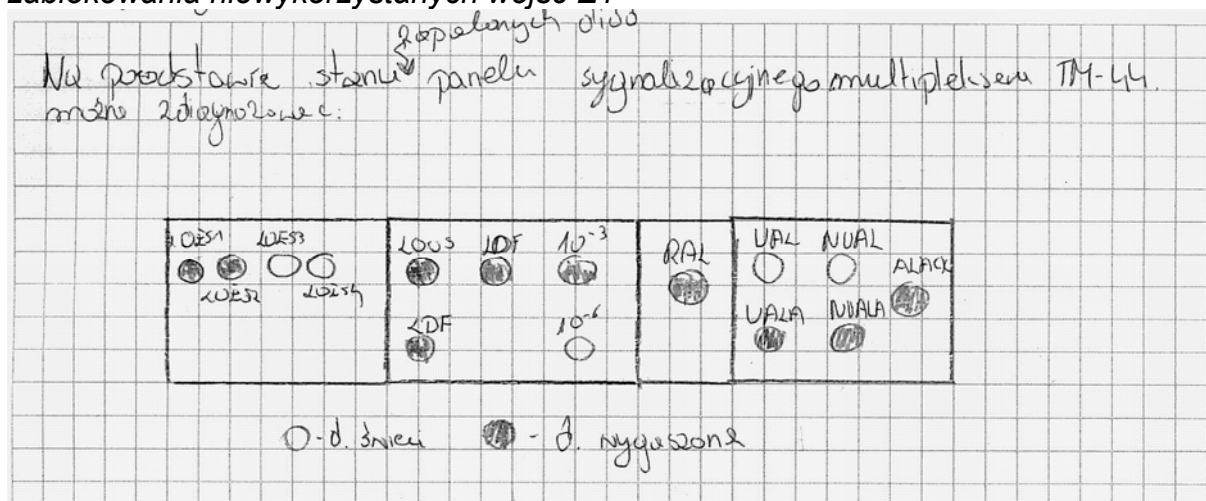 zablokowania niewykorzystanych wejść E1
zapalonych diod
Na podstawie stanu panelu sygnalizacyjnego multipleksera TM-44.
można zdiagnozować:
LOES1 LOES3
LOES2 LOES4
LOUS LDF 10⁻³
LDF 10⁻⁶
RAL
UAL NUAL
ALACK
UALA NUALA
O-d. świeci - d. wygaszona